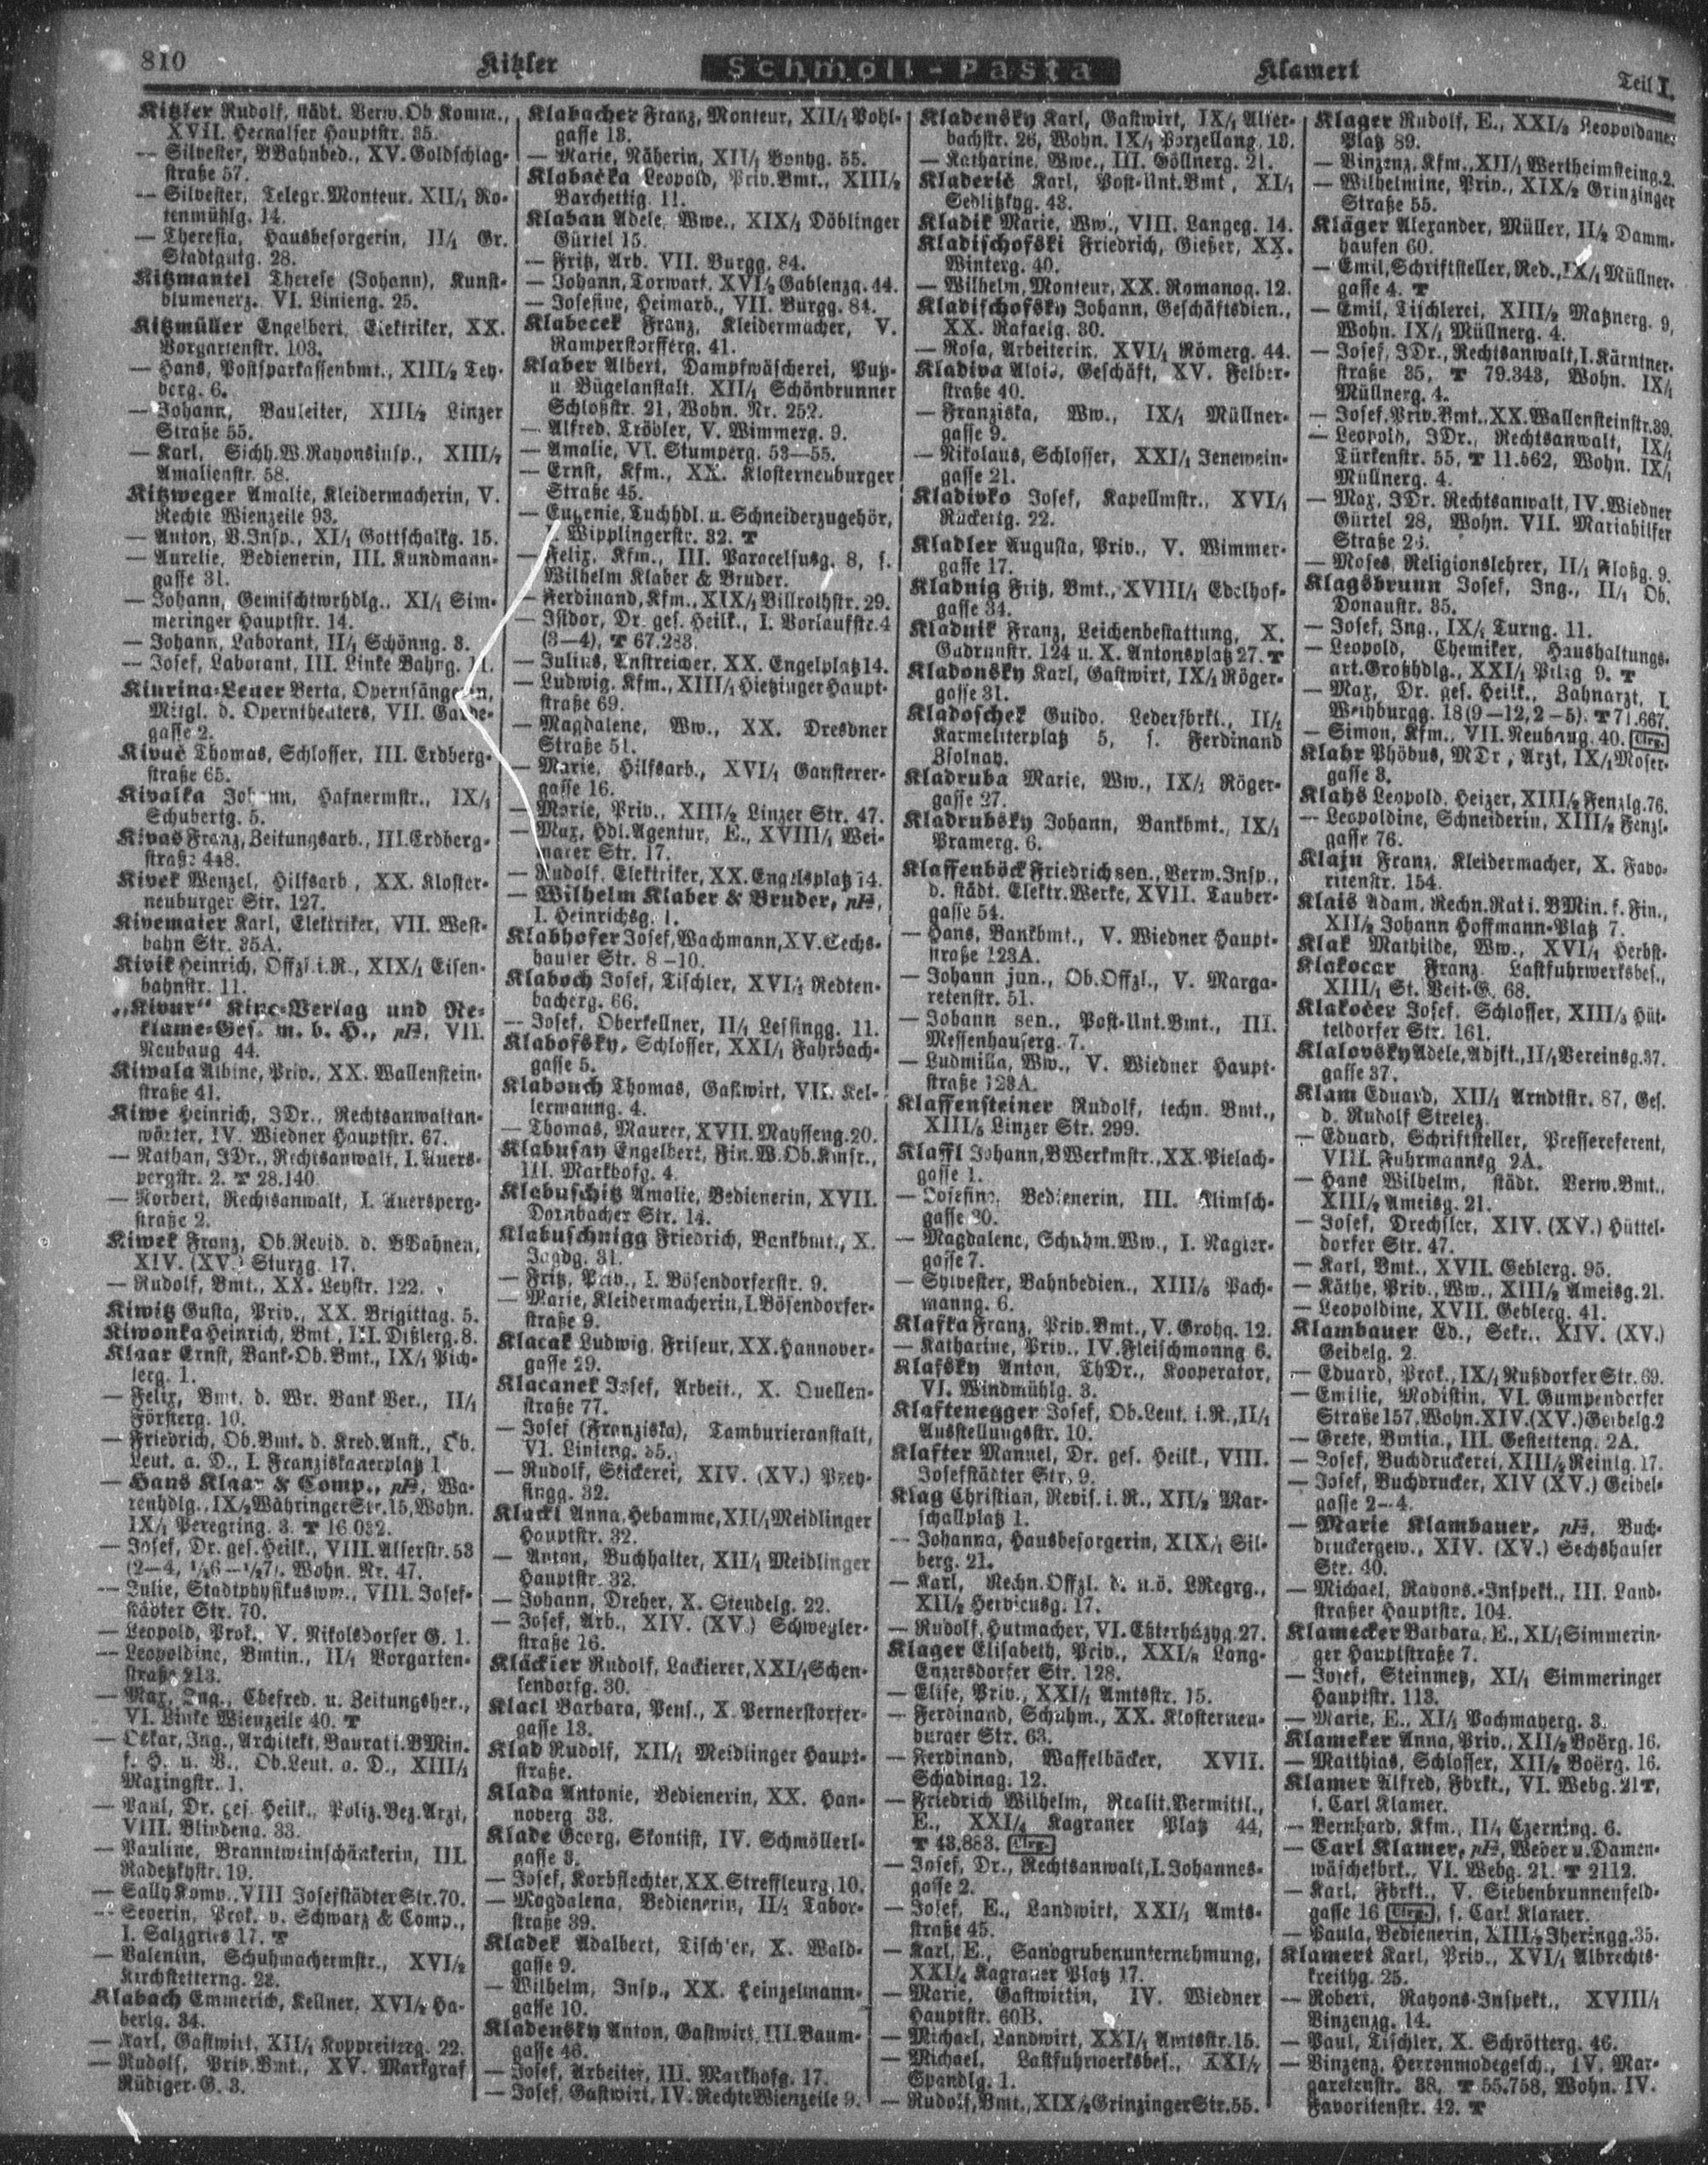 810
Kitzler
Schmoll-Pasta
Klamert
Teil I.
Kitzler Rudolf, städt. Verw.Ob.Komm.,
XVII. Hernalser Hauptstr. 35.
— Silvester, BBahnbed., XV. Goldschlag-
straße 57.
— Silvester, Telegr.Monteur, XII/1 Ro-
tenmühlg. 14.
— Theresia, Hausbesorgerin, II/1 Gr.
Stadtgutg. 28.
Kitzmantel Therese (Johann), Kunst-
blumenerz. VI. Linieng. 25.
Kitzmüller Engelbert, Elektriker, XX.
Vorgartenstr. 103.
— Hans, Postsparkassenbmt., XIII/2 Tey-
berg. 6.
— Johann, Bauleiter, XIII/2 Linzer
Straße 55.
— Karl, Sichh.W.Rayonsinsp., XIII/7
Amalienstr. 58.
Kitzweger Amalie, Kleidermacherin, V.
Rechte Wienzeile 93.
— Anton, V.Insp., XI/1 Gottschalkg. 15.
— Aurelie, Bedienerin, III. Kundmann-
gasse 31.
— Johann, Gemischtwrhdlg., XI/1 Sim-
meringer Hauptstr. 14.
— Johann, Laborant, II/1 Schönng. 3.
— Josef, Laborant, III. Linke Bahng. 11.
Kiurina-Leuer Berta, Opernsängerin,
Mitgl. d. Operntheaters, VII. Garde-
gasse 2.
Kivuč Thomas, Schlosser, III. Erdberg-
straße 65.
Kivalka Johann, Hafnermstr., IX/1
Schubertg. 5.
Kivas Franz, Zeitungsarb., III. Erdberg-
straße 448.
Kivek Wenzel, Hilfsarb., XX. Kloster-
neuburger Str. 127.
Kivemaier Karl, Elektriker, VII. West-
bahn Str. 35A.
Kivik Heinrich, Offzl.i.R., XIX/1 Eisen-
bahnstr. 11.
„Kivur" Kino-Verlag und Re-
klame-Ges. m. b. H., pH, VII.
Neubaug 44.
Kiwala Albine, Priv., XX. Wallenstein-
straße 41.
Kiwe Heinrich, JDr., Rechtsanwaltan-
wärter, IV. Wiedner Hauptstr. 67.
— Nathan, JDr., Rechtsanwalt, I. Auers-
pergstr. 2. T 28.140.
— Norbert, Rechtsanwalt, I. Auersperg-
straße 2.
Kiwek Franz, Ob.Revid. d. BBahnen,
XIV. (XV.) Sturzg. 17.
— Rudolf, Bmt., XX. Leystr. 122.
Kiwitz Gusta, Priv., XX. Brigittag. 5.
Kiwonka Heinrich, Bmt., III. Dißlerg. 8.
Klaar Ernst, Bank-Ob.Bmt., IX/1 Pich-
lerg. 1.
— Felix, Bmt. d. Wr. Bank Ver., II/1
Försterg. 10.
— Friedrich, Ob.Bmt. d. Kred.Anst., Ob.
Leut. a. D., I. Franziskanerplatz 1.
— Hans Klaar & Comp., pH, Wa-
renhdlg., IX/2 Währinger Str. 15, Wohn.
IX/1 Peregring. 3. T 16.032.
— Josef, Dr. ges. Heilk., VIII. Alserstr. 53
(2—4, ½6—½7). Wohn. Nr. 47.
— Julie, Stadtphysikuswwe., VIII. Josef-
städter Str. 70.
— Leopold, Prok., V. Nikolsdorfer G. 1.
— Leopoldine, Bmtin., II/1 Vorgarten-
straße 213.
— Max, Ing., Chefred. u. Zeitungsher.,
VI. Linke Wienzeile 40. T
— Oskar, Ing., Architekt, Baurat i. BMin.
f. H. u. V., Ob.Leut. a. D., XIII/1
Maxingstr. 1.
— Paul, Dr. ges. Heilk., Poliz.Bez.Arzt,
VIII. Blindeng. 33.
— Pauline, Branntweinschänkerin, III.
Radetzkystr. 19.
— Sally Komp., VIII Josefstädter Str. 70.
— Severin, Prok. v. Schwarz & Comp.,
I. Salzgries 17. T
— Valentin, Schuhmachermstr., XVI/2
Kirchstetterng. 28.
Klabach Emmerich, Kellner, XVI/2 Ha-
berlg. 34.
— Karl, Gastwirt, XII/1 Koppreiterg. 22.
— Rudolf, Priv.Bmt., XV. Markgraf
Rüdiger-G. 3.
Klabacher Franz, Monteur, XII/1 Pohl-
gasse 13.
— Marie, Näherin, XII/1 Bonyg. 55.
Klabačka Leopold, Priv.Bmt., XIII/2
Barchettig. 11.
Klaban Adele, Wwe., XIX/1 Döblinger
Gürtel 15.
— Fritz, Arb. VII. Burgg. 84.
— Johann, Torwart, XVI/2 Gablenzg. 44.
— Josefine, Heimarb., VII. Burgg. 84.
Klabecek Franz, Kleidermacher, V.
Ramperstorfferg. 41.
Klaber Albert, Dampfwäscherei, Putz-
u. Bügelanstalt, XII/1 Schönbrunner
Schloßstr. 21, Wohn. Nr. 252.
— Alfred, Trödler, V. Wimmerg. 9.
— Amalie, VI. Stumperg. 53—55.
— Ernst, Kfm., XX. Klosterneuburger
Straße 45.
— Eugenie, Tuchhdl. u. Schneiderzugehör,
I. Wipplingerstr. 32. T
— Felix, Kfm., III. Paracelsusg. 8, s.
Wilhelm Klaber & Bruder.
— Ferdinand, Kfm., XIX/1 Billrothstr. 29.
— Isidor, Dr. ges. Heilk., I. Vorlaufstr. 4
(3—4), T 67.283.
— Julius, Anstreicher, XX. Engelplatz 14.
— Ludwig, Kfm., XIII/1 Hietzinger Haupt-
straße 69.
— Magdalene, Ww., XX. Dresdner
Straße 51.
— Marie, Hilfsarb., XVI/1 Gansterer-
gasse 16.
— Marie, Priv., XIII/2 Linzer Str. 47.
— Max, Hdl.Agentur, E., XVIII/1 Wei-
marer Str. 17.
— Rudolf, Elektriker, XX. Engelsplatz 14.
— Wilhelm Klaber & Bruder, pH,
I. Heinrichsg. 1.
Klabhofer Josef, Wachmann, XV. Sechs-
hauser Str. 8—10.
Klaboch Josef, Tischler, XVI/1 Redten-
bacherg. 66.
— Josef, Oberkellner, II/1 Lessingg. 11.
Klabofsky, Schlosser, XXI/1 Fahrbach-
gasse 5.
Klabouch Thomas, Gastwirt, VII. Kel-
lermanng. 4.
— Thomas, Maurer, XVII. Maysseng. 20.
Klabusay Engelbert, Fin.W.Ob.Kmsr.,
III. Markhofg. 4.
Klabuschitz Amalie, Bedienerin, XVII.
Dornbacher Str. 14.
Klabuschnigg Friedrich, Bankbmt., X.
Jagdg. 31.
— Fritz, Priv., I. Bösendorferstr. 9.
— Marie, Kleidermacherin, I. Bösendorfer-
straße 9.
Klacak Ludwig, Friseur, XX. Hannover-
gasse 29.
Klacanek Josef, Arbeit., X. Quellen-
straße 77.
— Josef (Franziska), Tamburieranstalt,
VI. Linieng. 35.
— Rudolf, Stickerei, XIV. (XV.) Prey-
singg. 32.
Klackl Anna, Hebamme, XII/1 Meidlinger
Hauptstr. 32.
— Anton, Buchhalter, XII/1 Meidlinger
Hauptstr. 32.
— Johann, Dreher, X. Steudelg. 22.
— Josef, Arb., XIV. (XV.) Schwegler-
straße 16.
Kläckier Rudolf, Lackierer, XXI/1 Schen-
kendorfg. 30.
Klacl Barbara, Pens., X Pernerstorfer-
gasse 13.
Klad Rudolf, XII/1 Meidlinger Haupt-
straße.
Klada Antonie, Bedienerin, XX. Han-
noverg 33.
Klade Georg, Skontist, IV. Schmöllerl-
gasse 3.
— Josef, Korbflechter, XX. Streffleurg. 10.
— Magdalena, Bedienerin, II/1 Tabor-
straße 39.
Kladek Adalbert, Tischler, X. Wald-
gasse 9.
— Wilhelm, Insp., XX. Heinzelmann-
gasse 10.
Kladensky Anton, Gastwirt, III. Baum-
gasse 46.
— Josef, Arbeiter, III. Markhofg. 17.
— Josef, Gastwirt, IV. Rechte Wienzeile 9.
Kladensky Karl, Gastwirt, IX/1 Alser-
bachstr. 26, Wohn. IX/1 Porzellang. 18.
— Katharine, Wwe., III. Göllnerg. 21.
Kladerič Karl, Post-Unt.Bmt., XI/1
Sedlitzkyg. 43.
Kladik Marie, Ww., VIII. Langeg. 14.
Kladischofski Friedrich, Gießer, XX.
Winterg. 40.
— Wilhelm, Monteur, XX. Romanog. 12.
Kladischofsky Johann, Geschäftsdien.,
XX. Rafaelg. 30.
— Rosa, Arbeiterin, XVI/1 Römerg. 44.
Kladiva Alois, Geschäft, XV. Felber-
straße 40.
— Franziska, Ww., IX/1 Müllner-
gasse 9.
— Nikolaus, Schlosser, XXI/1 Jenewein-
gasse 21.
Kladivko Josef, Kapellmstr., XVI/1
Rückertg. 22.
Kladler Augusta, Priv., V. Wimmer-
gasse 17.
Kladnig Fritz, Bmt., XVIII/1 Edelhof-
gasse 34.
Kladnik Franz, Leichenbestattung, X.
Gudrunstr. 124 u. X. Antonsplatz 27. T
Kladonsky Karl, Gastwirt, IX/1 Röger-
gasse 31.
Kladoschek Guido, Lederfbrkt., II/1
Karmeliterplatz 5, s. Ferdinand
Zsolnay.
Kladruba Marie, Ww., IX/1 Röger-
gasse 27.
Kladrubsky Johann, Bankbmt., IX/1
Pramerg. 6.
Klaffenböck Friedrich sen., Verw.Insp.,
d. städt. Elektr.Werke, XVII. Tauber-
gasse 54.
— Hans, Bankbmt., V. Wiedner Haupt-
straße 123A.
— Johann jun., Ob.Offzl., V. Marga-
retenstr. 51.
— Johann sen., Post-Unt.Bmt., III.
Messenhauserg. 7.
— Ludmilla, Ww., V. Wiedner Haupt-
straße 123A.
Klaffensteiner Rudolf, techn. Bmt.,
XIII/5 Linzer Str. 299.
Klaffl Johann, BWerkmstr., XX. Pielach-
gasse 1.
— Josefine, Bedienerin, III. Klimsch-
gasse 30.
— Magdalene, Schuhm.Ww., I. Nagler-
gasse 7.
— Sylvester, Bahnbedien., XIII/5 Pach-
manng. 6.
Klafka Franz, Priv.Bmt., V. Grohg. 12.
— Katharine, Priv., IV. Fleischmanng 6.
Klafsky Anton, ThDr., Kooperator,
VI. Windmühlg. 3.
Klaftenegger Josef, Ob.Leut. i.R., II/1
Ausstellungsstr. 10.
Klafter Manuel, Dr. ges. Heilk., VIII.
Josefstädter Str. 9.
Klag Christian, Revis. i. R., XII/2 Mar-
schallplatz 1.
— Johanna, Hausbesorgerin, XIX/1 Sil-
berg. 21.
— Karl, Rechn.Offzl. d. n.ö. LRegrg.,
XII/2 Hervicusg. 17.
— Rudolf, Hutmacher, VI. Eßterházyg. 27.
Klager Elisabeth, Priv., XXI/8 Lang-
Enzersdorfer Str. 128.
— Elise, Priv., XXI/1 Amtsstr. 15.
— Ferdinand, Schuhm., XX. Klosterneu-
burger Str. 63.
— Ferdinand, Waffelbäcker, XVII.
Schadinag. 12.
— Friedrich Wilhelm, Realit.Vermittl.,
E., XXI/4 Kagraner Platz 44,
T 43.883. Clrg.
— Josef, Dr., Rechtsanwalt, I. Johannes-
gasse 2.
— Josef, E., Landwirt, XXI/1 Amts-
straße 45.
— Karl, E., Sandgrubenunternehmung,
XXI/4 Kagraner Platz 17.
— Marie, Gastwirtin, IV. Wiedner
Hauptstr. 60B.
— Michael, Landwirt, XXI/1 Amtsstr. 15.
— Michael, Lastfuhrwerksbes., XXI/7
Spandlg. 1.
— Rudolf, Bmt., XIX/2 Grinzinger Str. 55.
Klager Rudolf, E., XXI/3 Leopoldauer
Platz 89.
— Vinzenz, Kfm., XII/1 Wertheimsteing. 2.
— Wilhelmine, Priv., XIX/2 Grinzinger
Straße 55.
Kläger Alexander, Müller, II/2 Damm-
haufen 60.
— Emil, Schriftsteller, Red., IX/1 Müllner-
gasse 4. T
— Emil, Tischlerei, XIII/2 Matznerg. 9,
Wohn. IX/1 Müllnerg. 4.
— Josef, JDr., Rechtsanwalt, I. Kärntner-
straße 35, T 79.343, Wohn. IX/1
Müllnerg. 4.
— Josef, Priv.Bmt., XX. Wallensteinstr. 39.
— Leopold, JDr., Rechtsanwalt, IX/1
Türkenstr. 55, T 11.562, Wohn. IX/1
Müllnerg. 4.
— Max, JDr. Rechtsanwalt, IV. Wiedner
Gürtel 28, Wohn. VII. Mariahilfer
Straße 23.
— Moses, Religionslehrer, II/1 Floßg. 9.
Klagsbrunn Josef, Ing., II/1 Ob.
Donaustr. 35.
— Josef, Ing., IX/1 Turng. 11.
— Leopold, Chemiker, Haushaltungs-
art.Großhdlg., XXI/1 Pilzg 9. T
— Max, Dr. ges. Heilk., Zahnarzt, I.
Weihburgg. 18 (9—12, 2—5). T 71.667.
— Simon, Kfm., VII. Neubaug. 40. Clrg.
Klahr Phöbus, MDr., Arzt, IX/1 Moser-
gasse 3.
Klahs Leopold, Heizer, XIII/2 Fenzlg. 76.
— Leopoldine, Schneiderin, XIII/2 Fenzl-
gasse 76.
Klajn Franz, Kleidermacher, X. Favo-
ritenstr. 154.
Klais Adam, Rechn.Rat i. BMin. f. Fin.,
XII/2 Johann Hoffmann-Platz 7.
Klak Mathilde, Ww., XVI/1 Herbst-
Klakocar Franz, Lastfuhrwerksbes.,
XIII/1 St. Veit-G. 68.
Klakočer Josef, Schlosser, XIII/3 Hüt-
teldorfer Str. 161.
Klalovsky Adele, Adjkt., II/1 Vereinsg. 37.
gasse 37.
Klam Eduard, XII/1 Arndtstr. 87, Ges.
d. Rudolf Strelez.
— Eduard, Schriftsteller, Pressereferent,
VIII. Fuhrmannsg 2A.
— Hans Wilhelm, städt. Verw.Bmt.,
XIII/2 Ameisg. 21.
— Josef, Drechsler, XIV. (XV.) Hüttel-
dorfer Str. 47.
— Karl, Bmt., XVII. Geblerg. 95.
— Käthe, Priv., Ww., XIII/2 Ameisg. 21.
— Leopoldine, XVII. Geblerg. 41.
Klambauer Ed., Sekr., XIV. (XV.)
Geibelg. 2.
— Eduard, Prok., IX/1 Nußdorfer Str. 69.
— Emilie, Modistin, VI. Gumpendorfer
Straße 157, Wohn. XIV. (XV.) Geibelg. 2
— Grete, Bmtin., III. Gestetteng. 2A.
— Josef, Buchdruckerei, XIII/2 Reinlg. 17.
— Josef, Buchdrucker, XIV (XV.) Geibel-
gasse 2—4.
— Marie Klambauer, pH, Buch-
druckergew., XIV. (XV.) Sechshauser
Str. 40.
— Michael, Rayons.-Inspekt., III. Land-
straßer Hauptstr. 104.
Klamecker Barbara, E., XI/1 Simmerin-
ger Hauptstraße 7.
— Josef, Steinmetz, XI/1 Simmeringer
Hauptstr. 113.
— Marie, E., XI/1 Pachmayerg. 3.
Klameker Anna, Priv., XII/2 Boërg. 16.
— Matthias, Schlosser, XII/2 Boërg. 16.
Klamer Alfred, Fbrkt., VI. Webg. 21 T,
s. Carl Klamer.
— Bernhard, Kfm., II/1 Czerning. 6.
— Carl Klamer, pH, Weber u. Damen-
wäschefbrk., VI. Webg. 21. T 2112.
— Karl, Fbrkt., V. Siebenbrunnenfeld-
gasse 16 Clrg., s. Carl Klamer.
— Paula, Bedienerin, XIII/2 Jheringg. 35.
Klamert Karl, Priv., XVI/1 Albrechts-
kreithg. 25.
— Robert, Rayons-Inspekt., XVIII/1
Vinzenzg. 14.
— Paul, Tischler, X. Schrötterg. 46.
— Vinzenz, Herrenmodegesch., IV. Mar-
garetenstr. 38, T 55.758, Wohn. IV.
Favoritenstr. 42. T